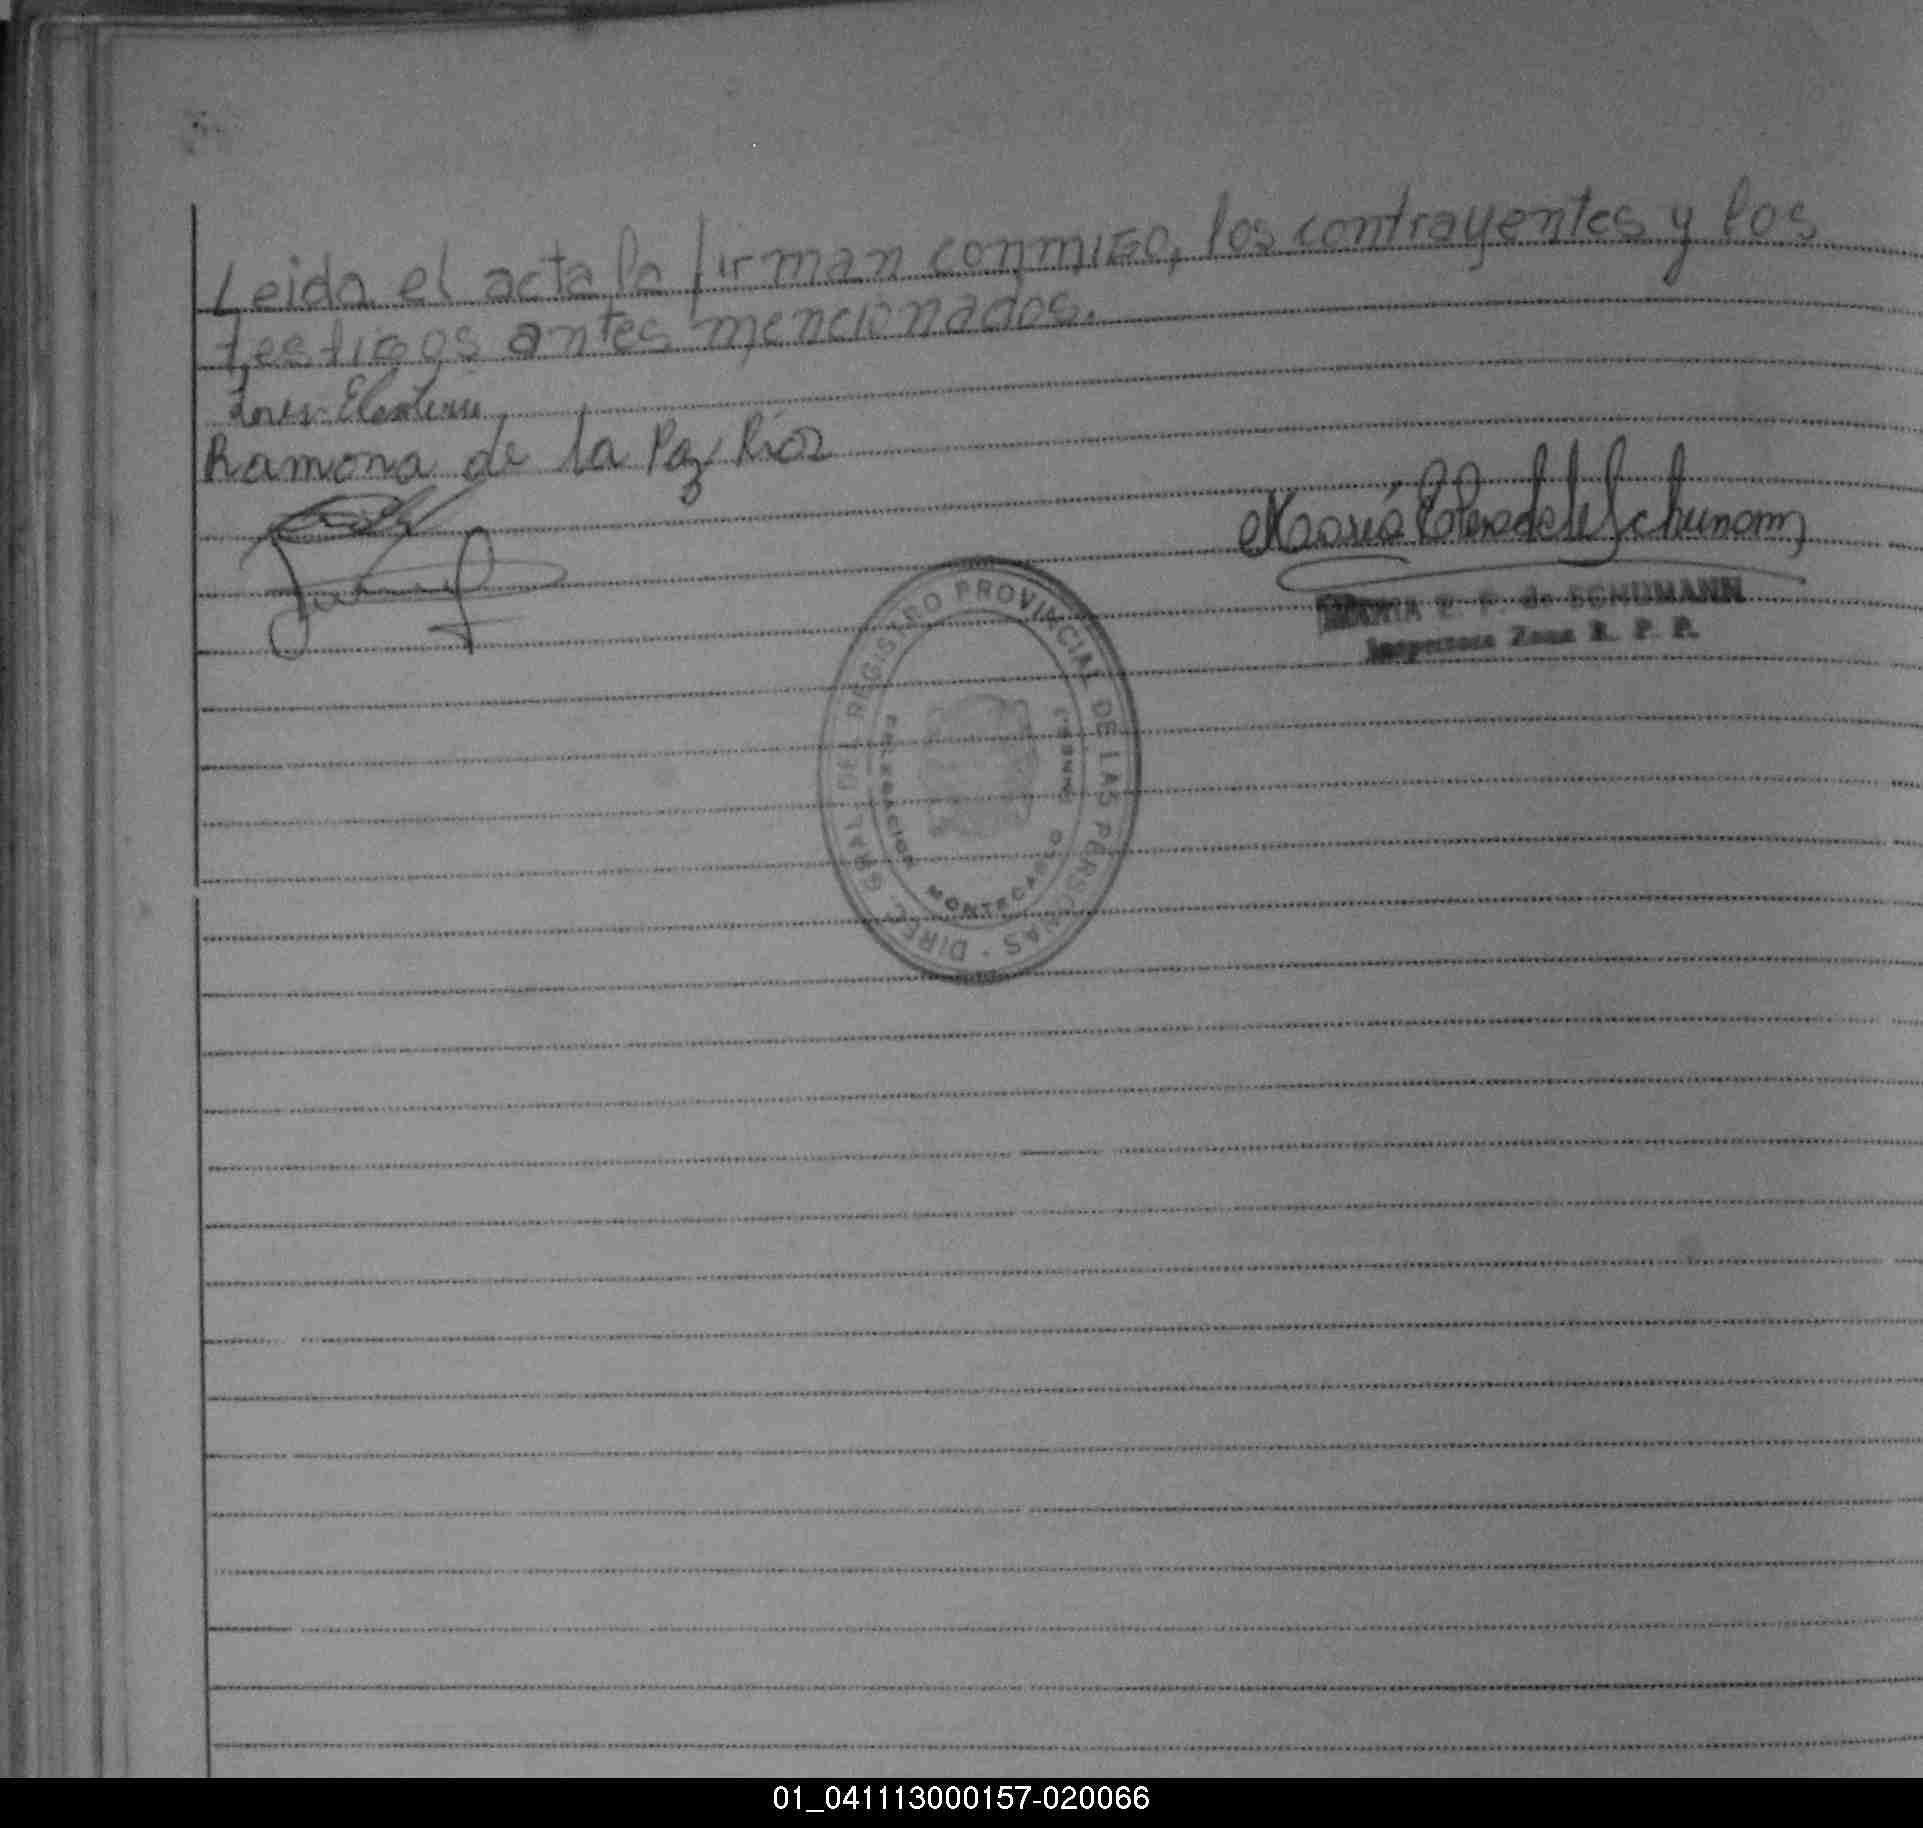 Leida el acta la firman conmigo, los contrayentes y los
testigos antes mencionados.
Ramona de la Paz Ríos
María de Schumann
MARIA E. F. de SCHUMANN
Inspectora Zona R. P. P.
DIREC. GRAL DEL REGISTRO PROVINCIAL DE LAS PERSONAS
MONTECARLO
01_041113000157-020066